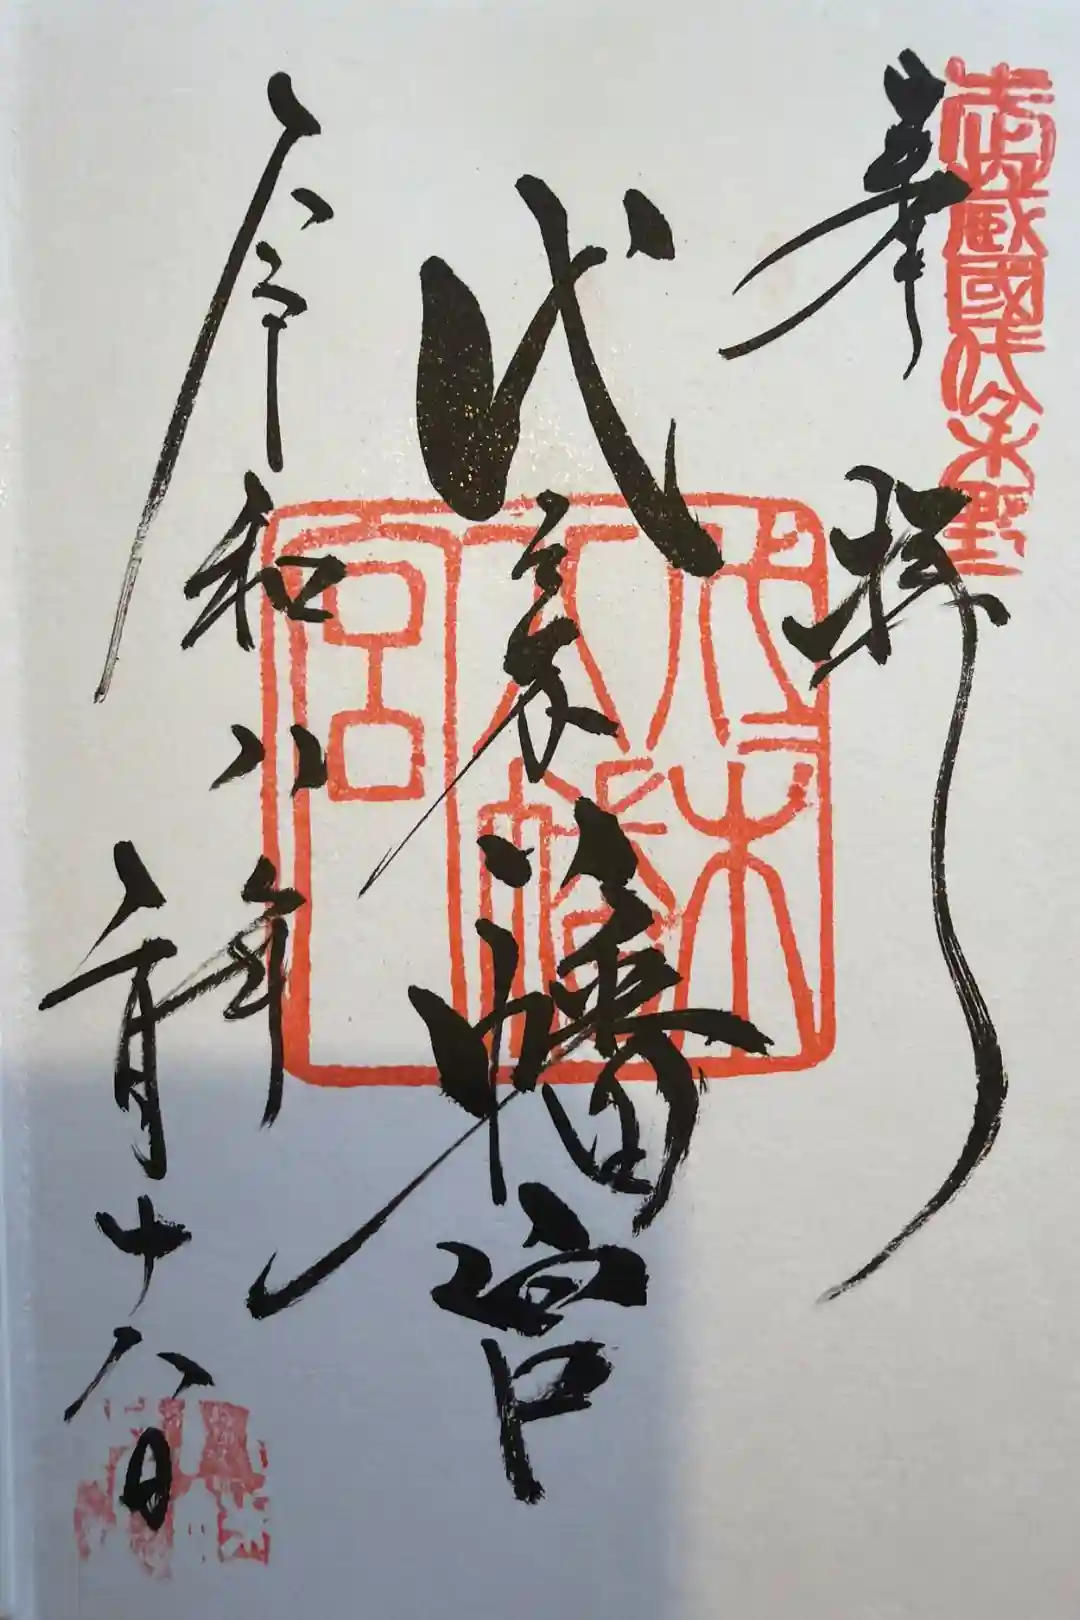 武蔵國代々木野
奉拝
代々木八幡宮
代々木八幡宮
令和八年
二月十八日